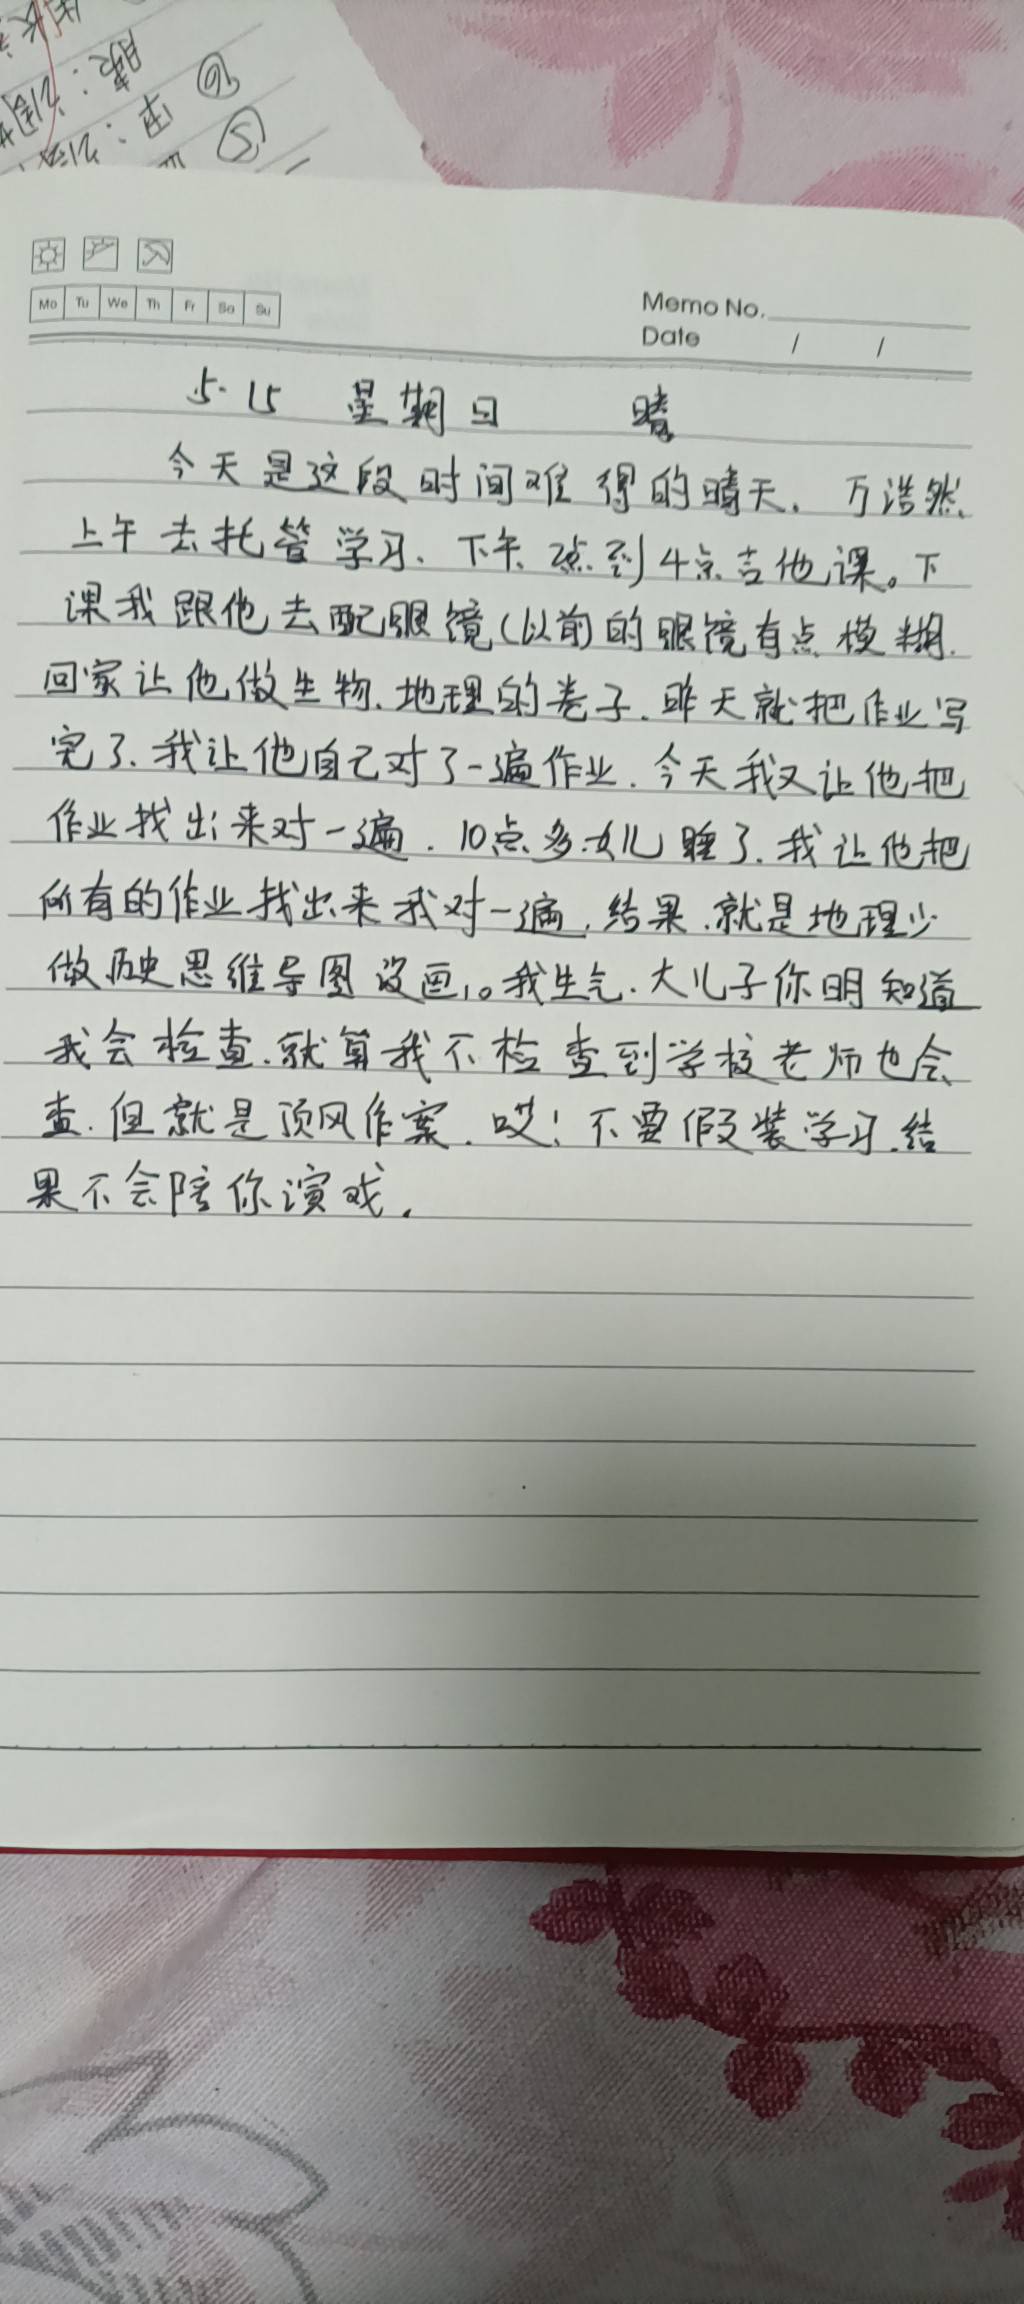 Mo Tu We Th Fr Sa Su
Memo No.
Date / /
5·15 星期日 晴
今天是这段时间难得的晴天.万浩然
上午去托管学习.下午2点到4点吉他课。下
课我跟他去配眼镜(以前的眼镜有点模糊.
回家让他做生物.地理的卷子.昨天就把作业写
完了.我让他自己对了一遍作业.今天我又让他把
作业找出来对一遍.10点多女儿睡了.我让他把
所有的作业找出来我对一遍.结果.就是地理少
做历史思维导图没画。我生气.大儿子你明知道
我会检查.就算我不检查到学校老师也会
查.但就是顶风作案.哎!不要假装学习.结
果不会陪你演戏.